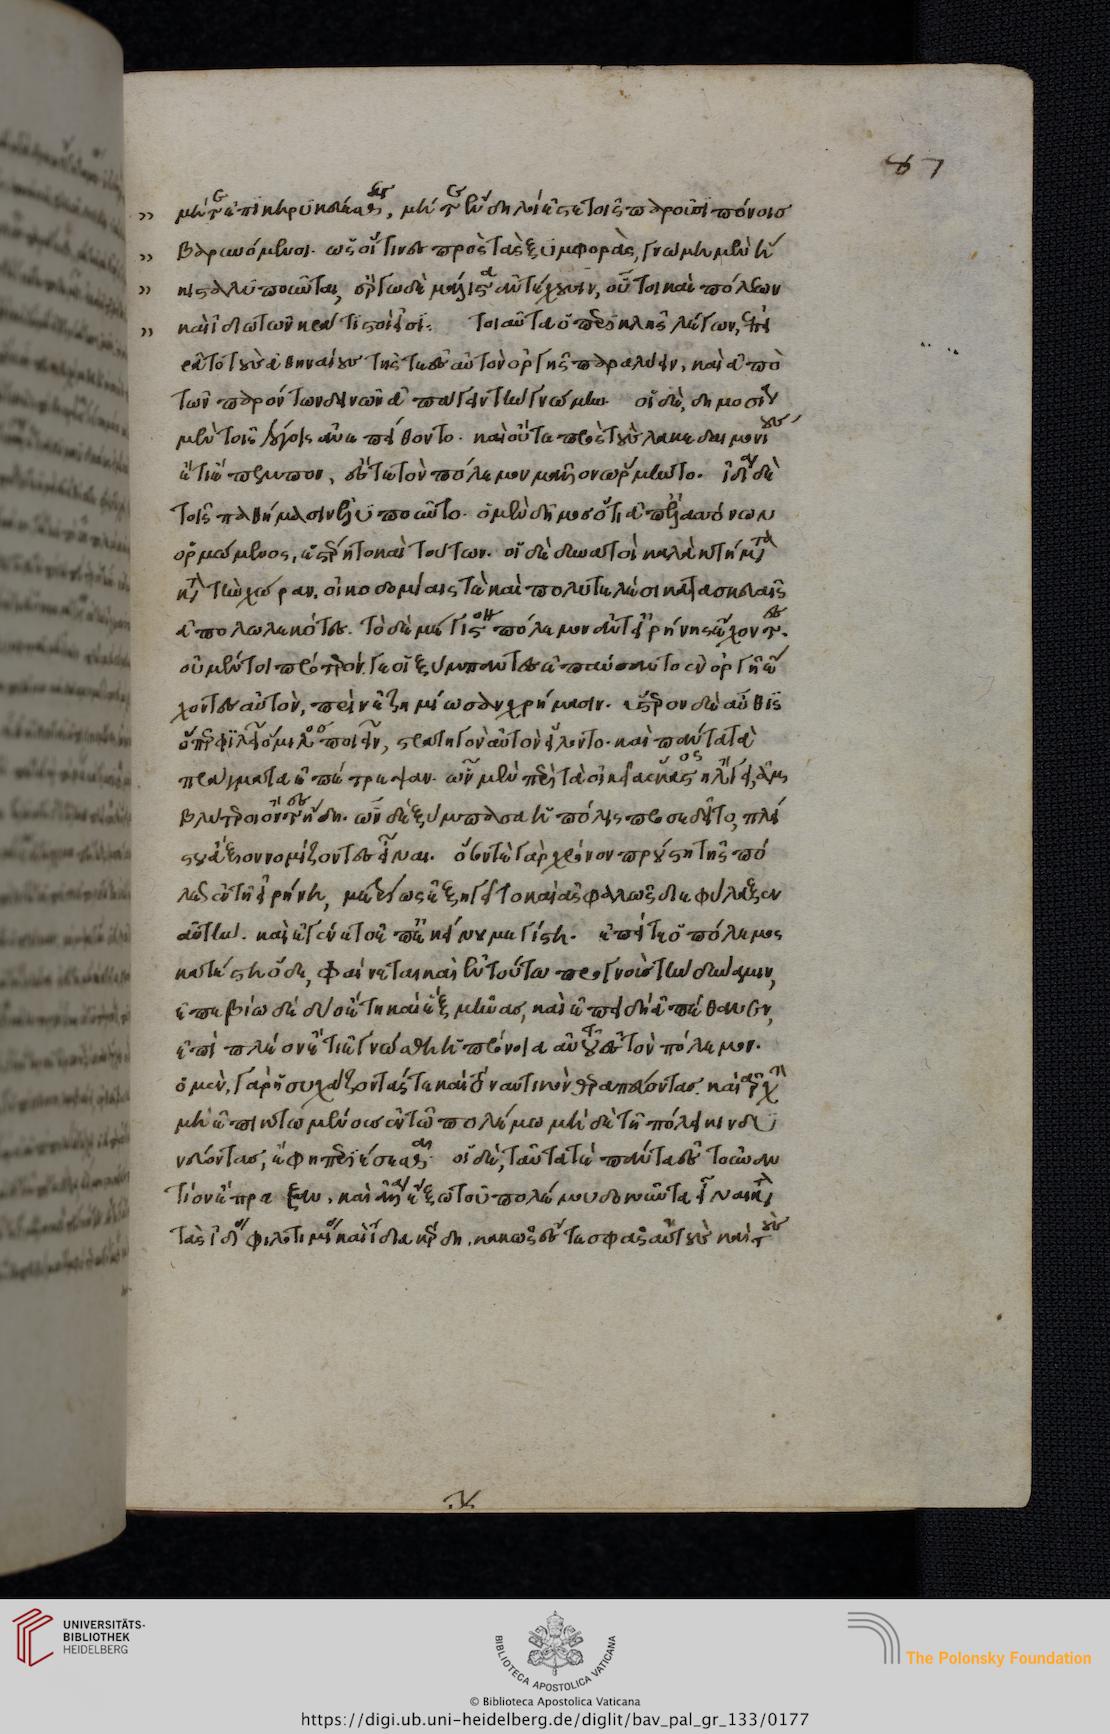 87
μήτε ἐπικηρυκεύεσθε, μήτε ἔνδηλοι ἔστε τοῖς παροῦσι πόνοις
βαρυνόμενοι. ὡς οἵτινες πρὸς τὰς ξυμφορὰς, γνώμῃ μὲν ἥ
κιστα λυποῦνται, ἔργῳ δὲ μάλιστα ἀντέχουσιν, οὗτοι καὶ πόλεων
καὶ ἰδιωτῶν κράτιστοί εἰσι. τοιαῦτα ὁ περικλῆς λέγων, ἐπει
ρᾶτο τοὺς ἀθηναίους τῆς τε ἐς αὐτὸν ὀργῆς παραλύειν, καὶ ἀπὸ
τῶν παρόντων δεινῶν ἀπάγειν τὴν γνώμην. οἱ δὲ, δημοσίᾳ
μὲν τοῖς λόγοις ἀνεπείθοντο. καὶ οὔτε πρὸς τοὺς λακεδαιμονίους
ἔτι ἔπεμπον, ἔς τε τὸν πόλεμον μᾶλλον ὥρμηντο. ἰδίᾳ δὲ
τοῖς παθήμασιν ἐλυποῦντο. ὁ μὲν δῆμος ὅτι ἀπ' ἐλασσόνων
ὁρμώμενος, ἐστέρητο καὶ τούτων. οἱ δὲ δυνατοὶ καλὰ κτήματα
κατὰ τὴν χώραν, οἰκοδομίαις τε καὶ πολυτελέσι κατασκευαῖς
ἀπολωλεκότες. τὸ δὲ μέγιστον πόλεμον ἀντ' εἰρήνης ἔχοντες.
οὐ μέντοι πρότερόν γε οἱ ξύμπαντες ἐπαύσαντο ἐν ὀργῇ ἔ
χοντες αὐτὸν, πρὶν ἐζημίωσαν χρήμασιν. ὕστερον δὲ αὖθις
ὅπερ φιλεῖ ὅμιλος ποιεῖν, στρατηγὸν αὐτὸν εἵλοντο. καὶ πάντα τὰ
πράγματα ἐπέτρεψαν. ὧν μὲν περὶ τὰ οἰκεῖα ἕκαστος ἤλγει, ἀμ
βλύτεροι ὄντες ἤδη. ὧν δὲ ξύμπασα ἡ πόλις προσεδεῖτο, πλεί
στου ἄξιον νομίζοντες εἶναι. ὅσον τε γὰρ χρόνον προύστη τῆς πό
λεως ἐν τῇ εἰρήνῃ, μετρίως ἐξηγεῖτο καὶ ἀσφαλῶς διεφύλαξεν
αὐτήν. καὶ ἐγένετο ἐπ' ἐκείνου μεγίστη. ἐπεί τε ὁ πόλεμος
κατέστη ὅδε, φαίνεται καὶ ἐν τούτῳ προγνοὺς τὴν δύναμιν,
ἐπεβίω δὲ δύο ἔτη καὶ ἓξ μῆνας, καὶ ἐπειδὴ ἀπέθανεν,
ἐπὶ πλέον ἔτι ἐγνώσθη ἡ πρόνοια αὐτοῦ ἐς τὸν πόλεμον.
ὁ μὲν, γὰρ ἡσυχάζοντάς τε καὶ τὸ ναυτικὸν θεραπεύοντας. καὶ ἀρχὴν
μὴ ἐπικτωμένους ἐν τῷ πολέμῳ μηδὲ τῇ πόλει κινδυ
νεύοντας, ἔφη περιέσεσθαι. οἱ δὲ, ταῦτά τε πάντα ἐς τοὐναν
τίον ἔπραξαν. καὶ ἄλλα ἔξω τοῦ πολέμου δοκοῦντα εἶναι κατὰ
τὰς ἰδίας φιλοτιμίας καὶ ἴδια κέρδη. κακῶς ἔς τε σφᾶς αὐτοὺς καὶ τοὺς
UNIVERSITÄTS-
BIBLIOTHEK
HEIDELBERG
BIBLIOTECA APOSTOLICA VATICANA
The Polonsky Foundation
© Biblioteca Apostolica Vaticana
https://digi.ub.uni-heidelberg.de/diglit/bav_pal_gr_133/0177